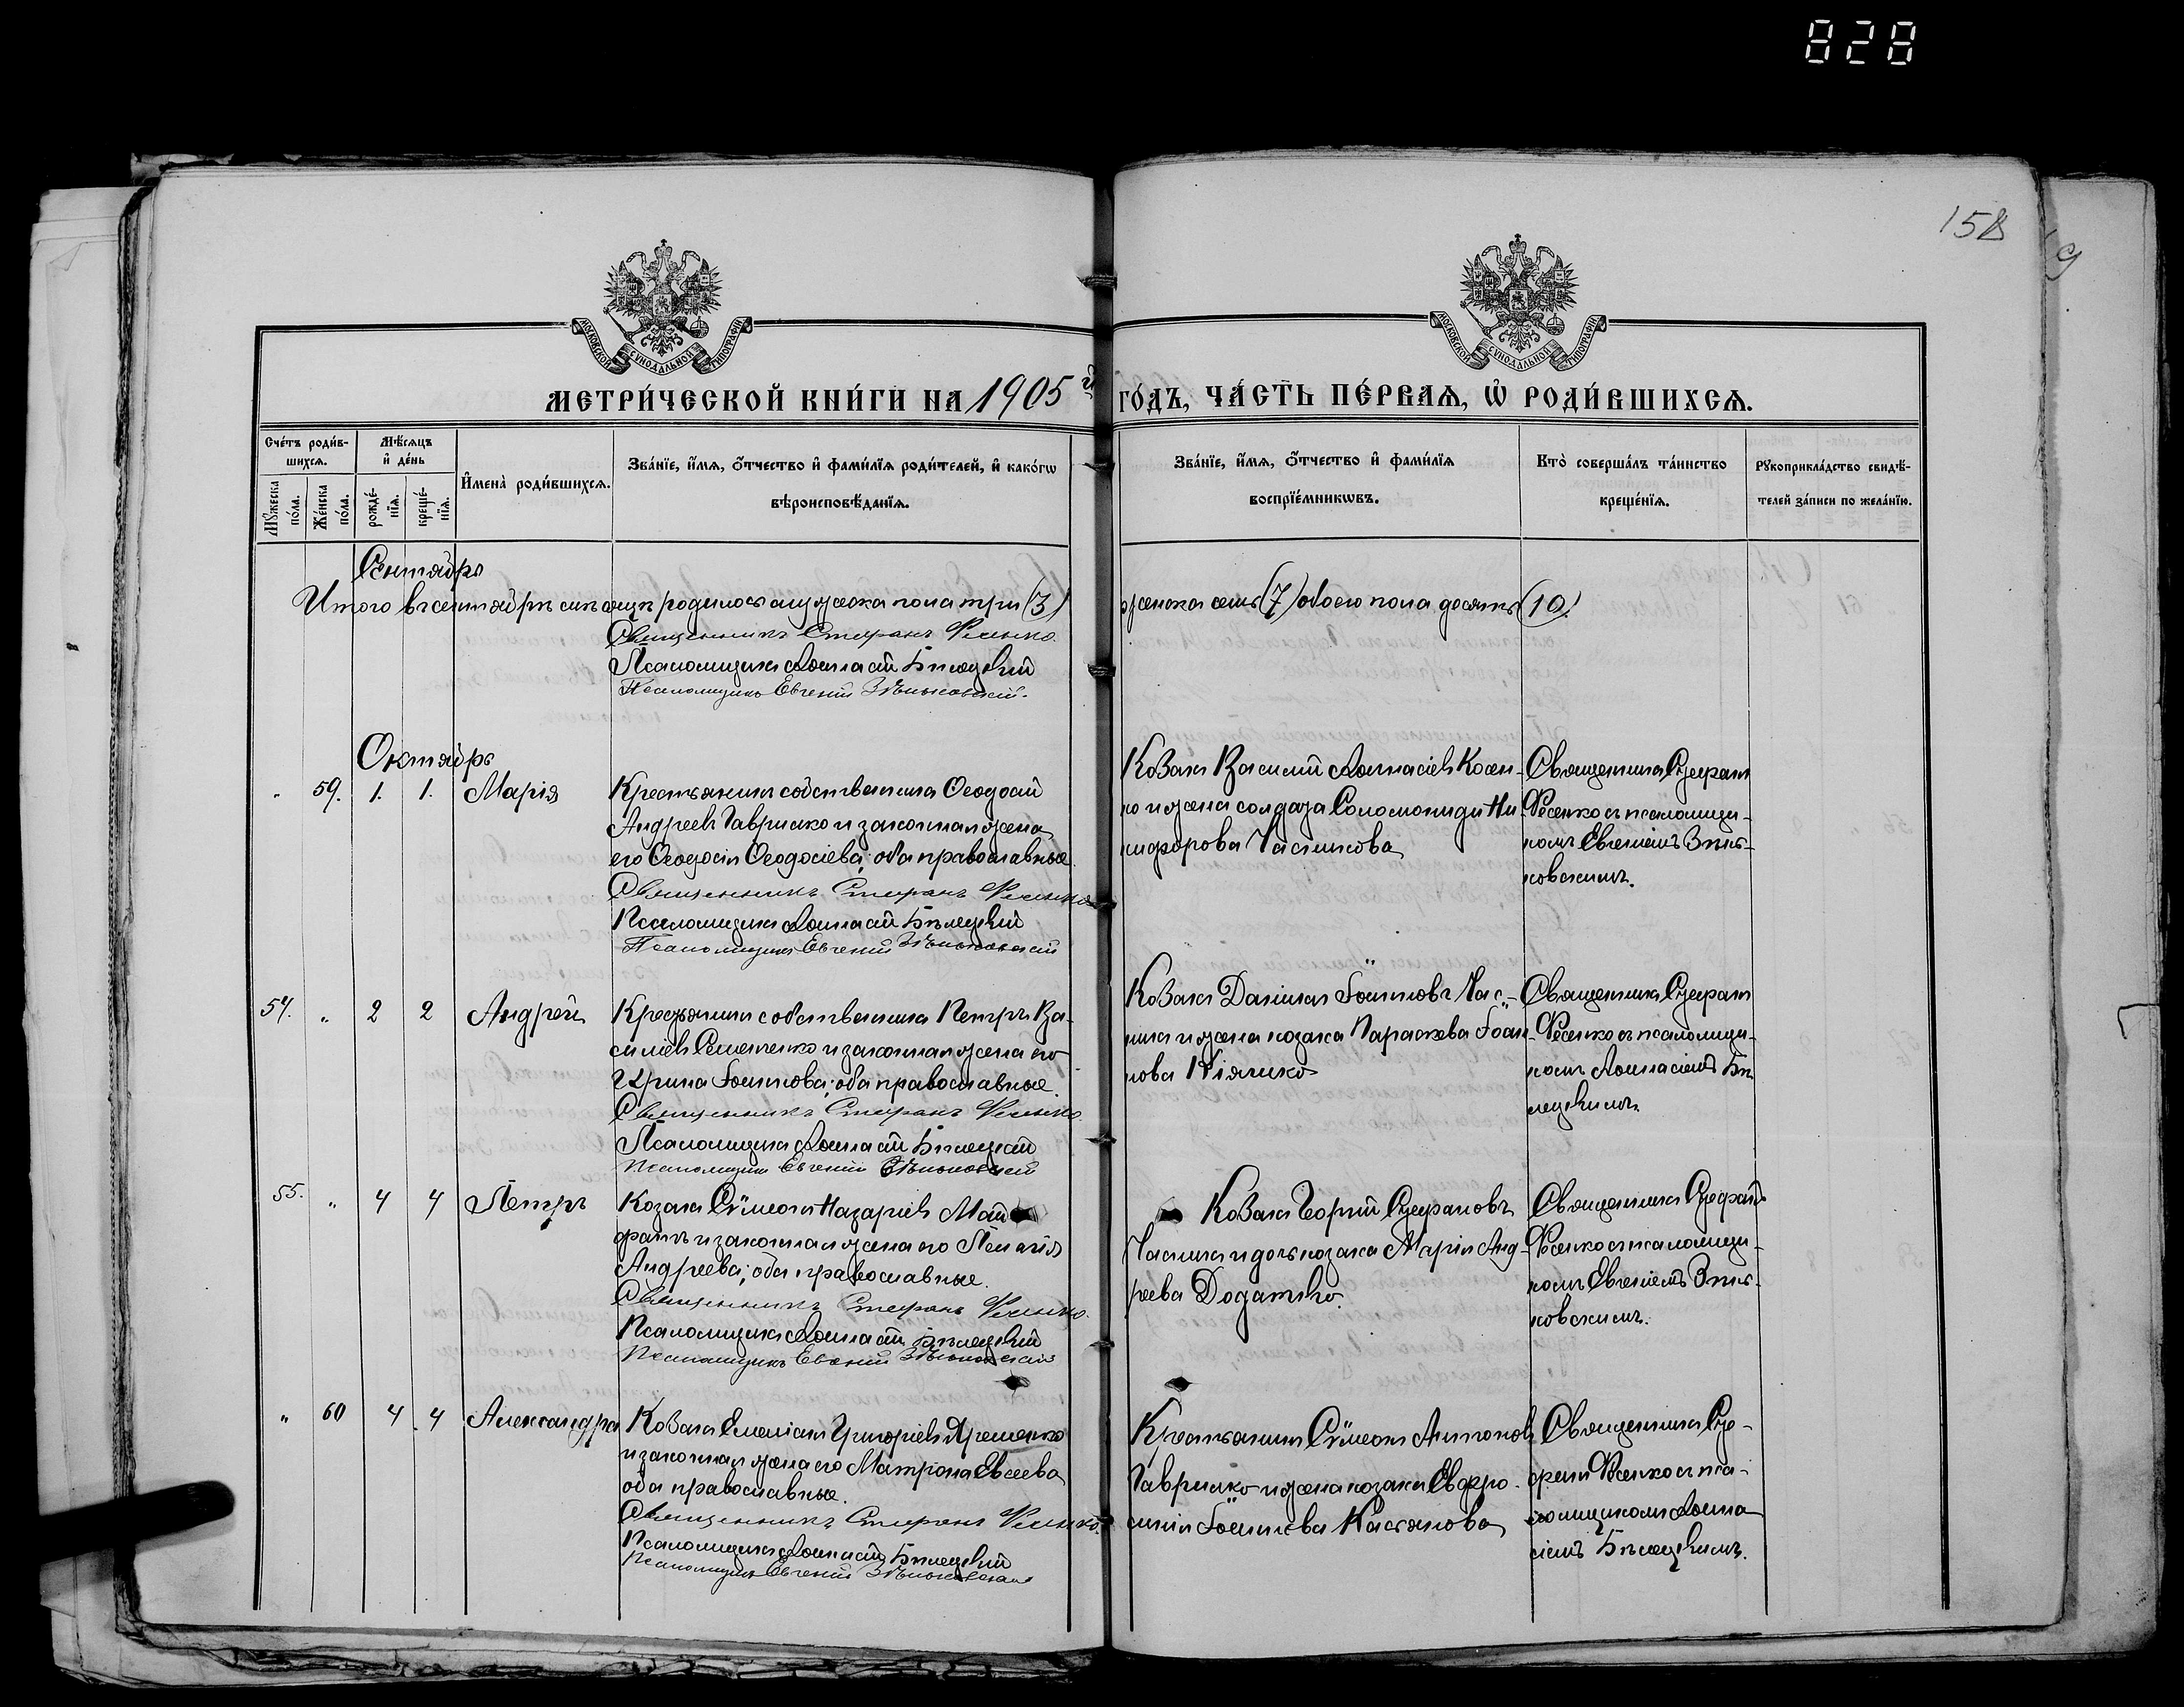 828
158
9
МОСКОВСКОЙ СѴНОДАЛЬНОЙ ТИПОГРАФІИ
МОСКОВСКОЙ СѴНОДАЛЬНОЙ ТИПОГРАФІИ
МЕТРИ́ЧЕСКОЙ КНИ́ГИ НА 1905 й
ГО́ДЪ, ЧА́СТЬ ПЕ́РВАѦ, Ѡ҆ РОДИ́ВШИХСѦ.
Сче́тъ роди́в-
шихсѧ.
Мꙋ́жеска по́ла.
Же́нска по́ла.
Мѣ́сѧцъ
и҆ де́нь
рожде́-
нїѧ.
креще́-
нїѧ.
И҆мена̀ роди́вшихсѧ.
Зва́нїе, и҆́мѧ, ѻ҆́тчество и҆ фами́лїѧ роди́телей, и҆ како́гѡ
вѣроисповѣ́данїѧ.
Зва́нїе, и҆́мѧ, ѻ҆́тчество и҆ фами́лїѧ
воспрїе́мникѡвъ.
Кто̀ соверша́лъ та́инство
креще́нїѧ.
Рꙋкоприкла́дство свидѣ́-
телей за́писи по жела́нїю.
Сентябрь
Итого въ сентябрѣ мѣсяцѣ родилось мужеска пола три (3)
женска семь (7) обоего пола десять (10)
Священникъ Стефанъ Фесенко
Псаломщикъ Аѳанасій Бѣлецкій
Псаломщикъ Евгеній Зѣньковскій.
Октябрь
" 59. 1. 1. Марія
Крестьянинъ собственникъ Ѳеодосій
Андреевъ Гавришко и законная жена
его Ѳеодосія Ѳеодосіева; оба православные.
Священникъ Стефанъ Фесенко
Псаломщикъ Аѳанасій Бѣлецкій
Псаломщикъ Евгеній Зѣньковскій
Козакъ Василій Аѳанасіевъ
и жена солдата Соломонида Ни-
кифорова
Священникъ Стефанъ
Фесенко съ псаломщи-
комъ Евгеніемъ Зѣнь-
ковскимъ.
54. " 2 2 Андрей
Крестьянинъ собственникъ Петръ Ва-
силіевъ Семененко и законная жена его
Ирина Іоаннова; оба православные.
Священникъ Стефанъ Фесенко
Псаломщикъ Аѳанасій Бѣлецкій
Псаломщикъ Евгеній Зѣньковскій
Козакъ Даніилъ Іоанновъ
и жена козака Параскева Іоан-
нова
Священникъ Стефанъ
Фесенко съ псаломщи-
комъ Аѳанасіемъ Бѣ-
лецкимъ.
55. " 4 4 Петръ
Козакъ Сѵмеонъ Назаріевъ
и законная жена его Пелагія
Андреева; оба православные.
Священникъ Стефанъ Фесенко.
Псаломщикъ Аѳанасій Бѣлецкій
Псаломщикъ Евгеній Зѣньковскій
Козакъ Георгій Стефановъ
и дочь козака Марія Анд-
реева Додатко.
Священникъ Стефанъ
Фесенко съ псаломщи-
комъ Евгеніемъ Зѣнь-
ковскимъ.
" 60 4 4 Александра
Козакъ Емеліанъ Григоріевъ Яременко
и законная жена его Матрона Евсеева
оба православные.
Священникъ Стефанъ Фесенко.
Псаломщикъ Аѳанасій Бѣлецкій
Псаломщикъ Евгеній Зѣньковскій
Крестьянинъ Сѵмеонъ Антоновъ
Гавришко и жена козака Евфро-
синія Іоаннова Касьянова
Священникъ Сте-
фанъ Фесенко съ пса-
ломщикомъ Аѳана-
сіемъ Бѣлецкимъ.